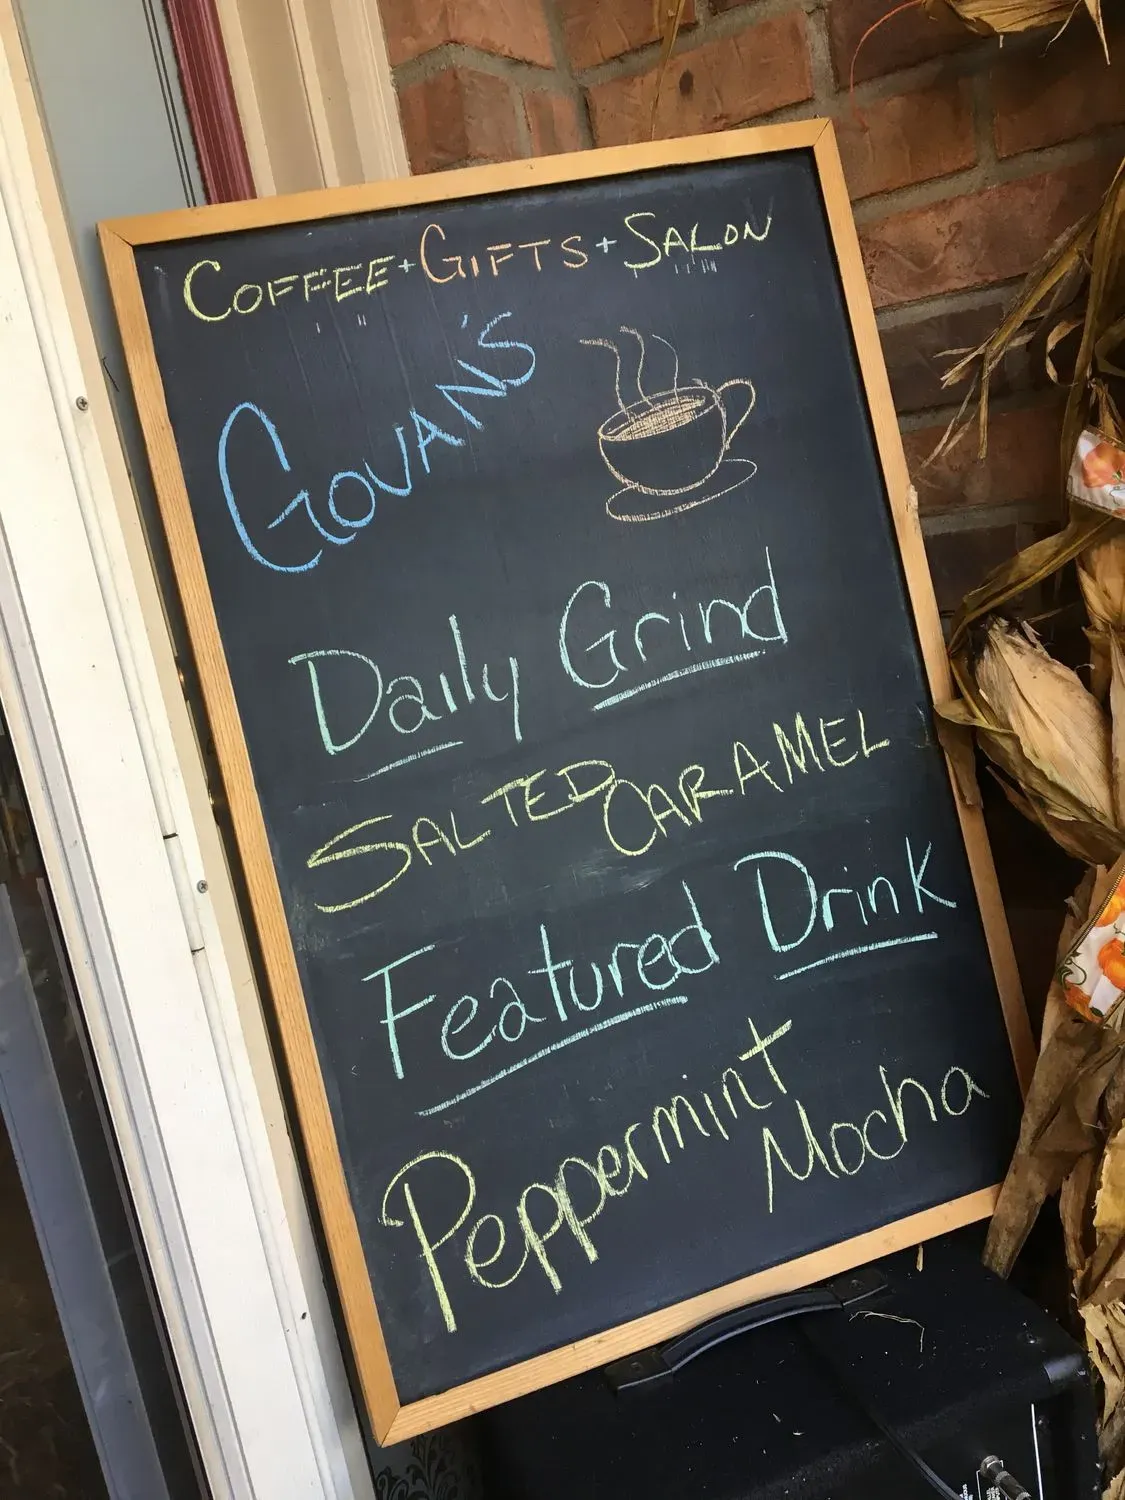 COFFEE + GIFTS + SALON
GOVAN'S
Daily Grind
SALTED CARAMEL
Featured Drink
Peppermint
Mocha